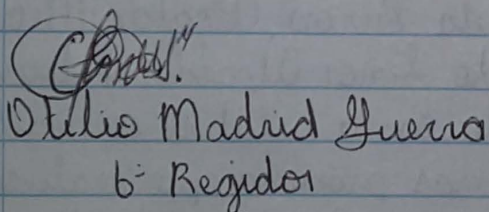 Otilio Madrid Guerra
6- Regidor